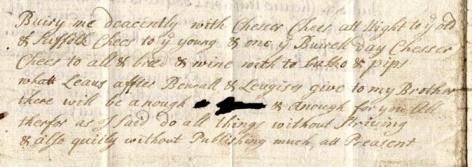 Buiry me deacently with Chesser Chees all Night to yͤ old
& Suffolk Chees to yͤ young & one yͤ Buirell day Chesser
Chees to all & bred & wine with to bakko & pips
what Leaus affter Bewrall & Leugisy give to my Brother
there will be a nough & Anough for you All
therfor as I said do all things without Striving
& also quitly without Publishing much, all Preasent